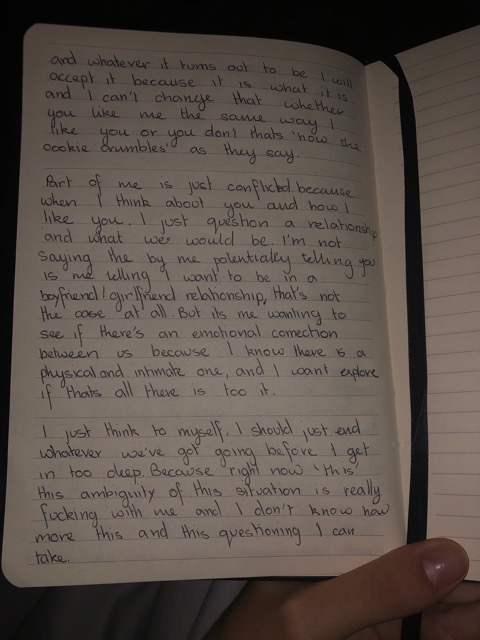 and whatever it turns out to be I will
accept it because it is what it is
and I can't change that whether
you like me the same way I
like you or you don't thats 'how the
cookie crumbles' as they say.
Part of me is just conflicted because
when I think about you and how I
like you. I just question a relationship
and what we would be. I'm not
saying the by me potentially telling you
is me telling I want to be in a
boyfriend/girlfriend relationship, that's not
the case at all. But its me wanting to
see if there's an emotional connection
between us because I know there is a
physical and intimate one, and I want explore
if thats all there is too it.
I just think to myself, I should just end
whatever we've got going before I get
in too deep. Because right now 'this'
this ambiguity of this situation is really
fucking with me and I don't know how
more this and this questioning I can
take.